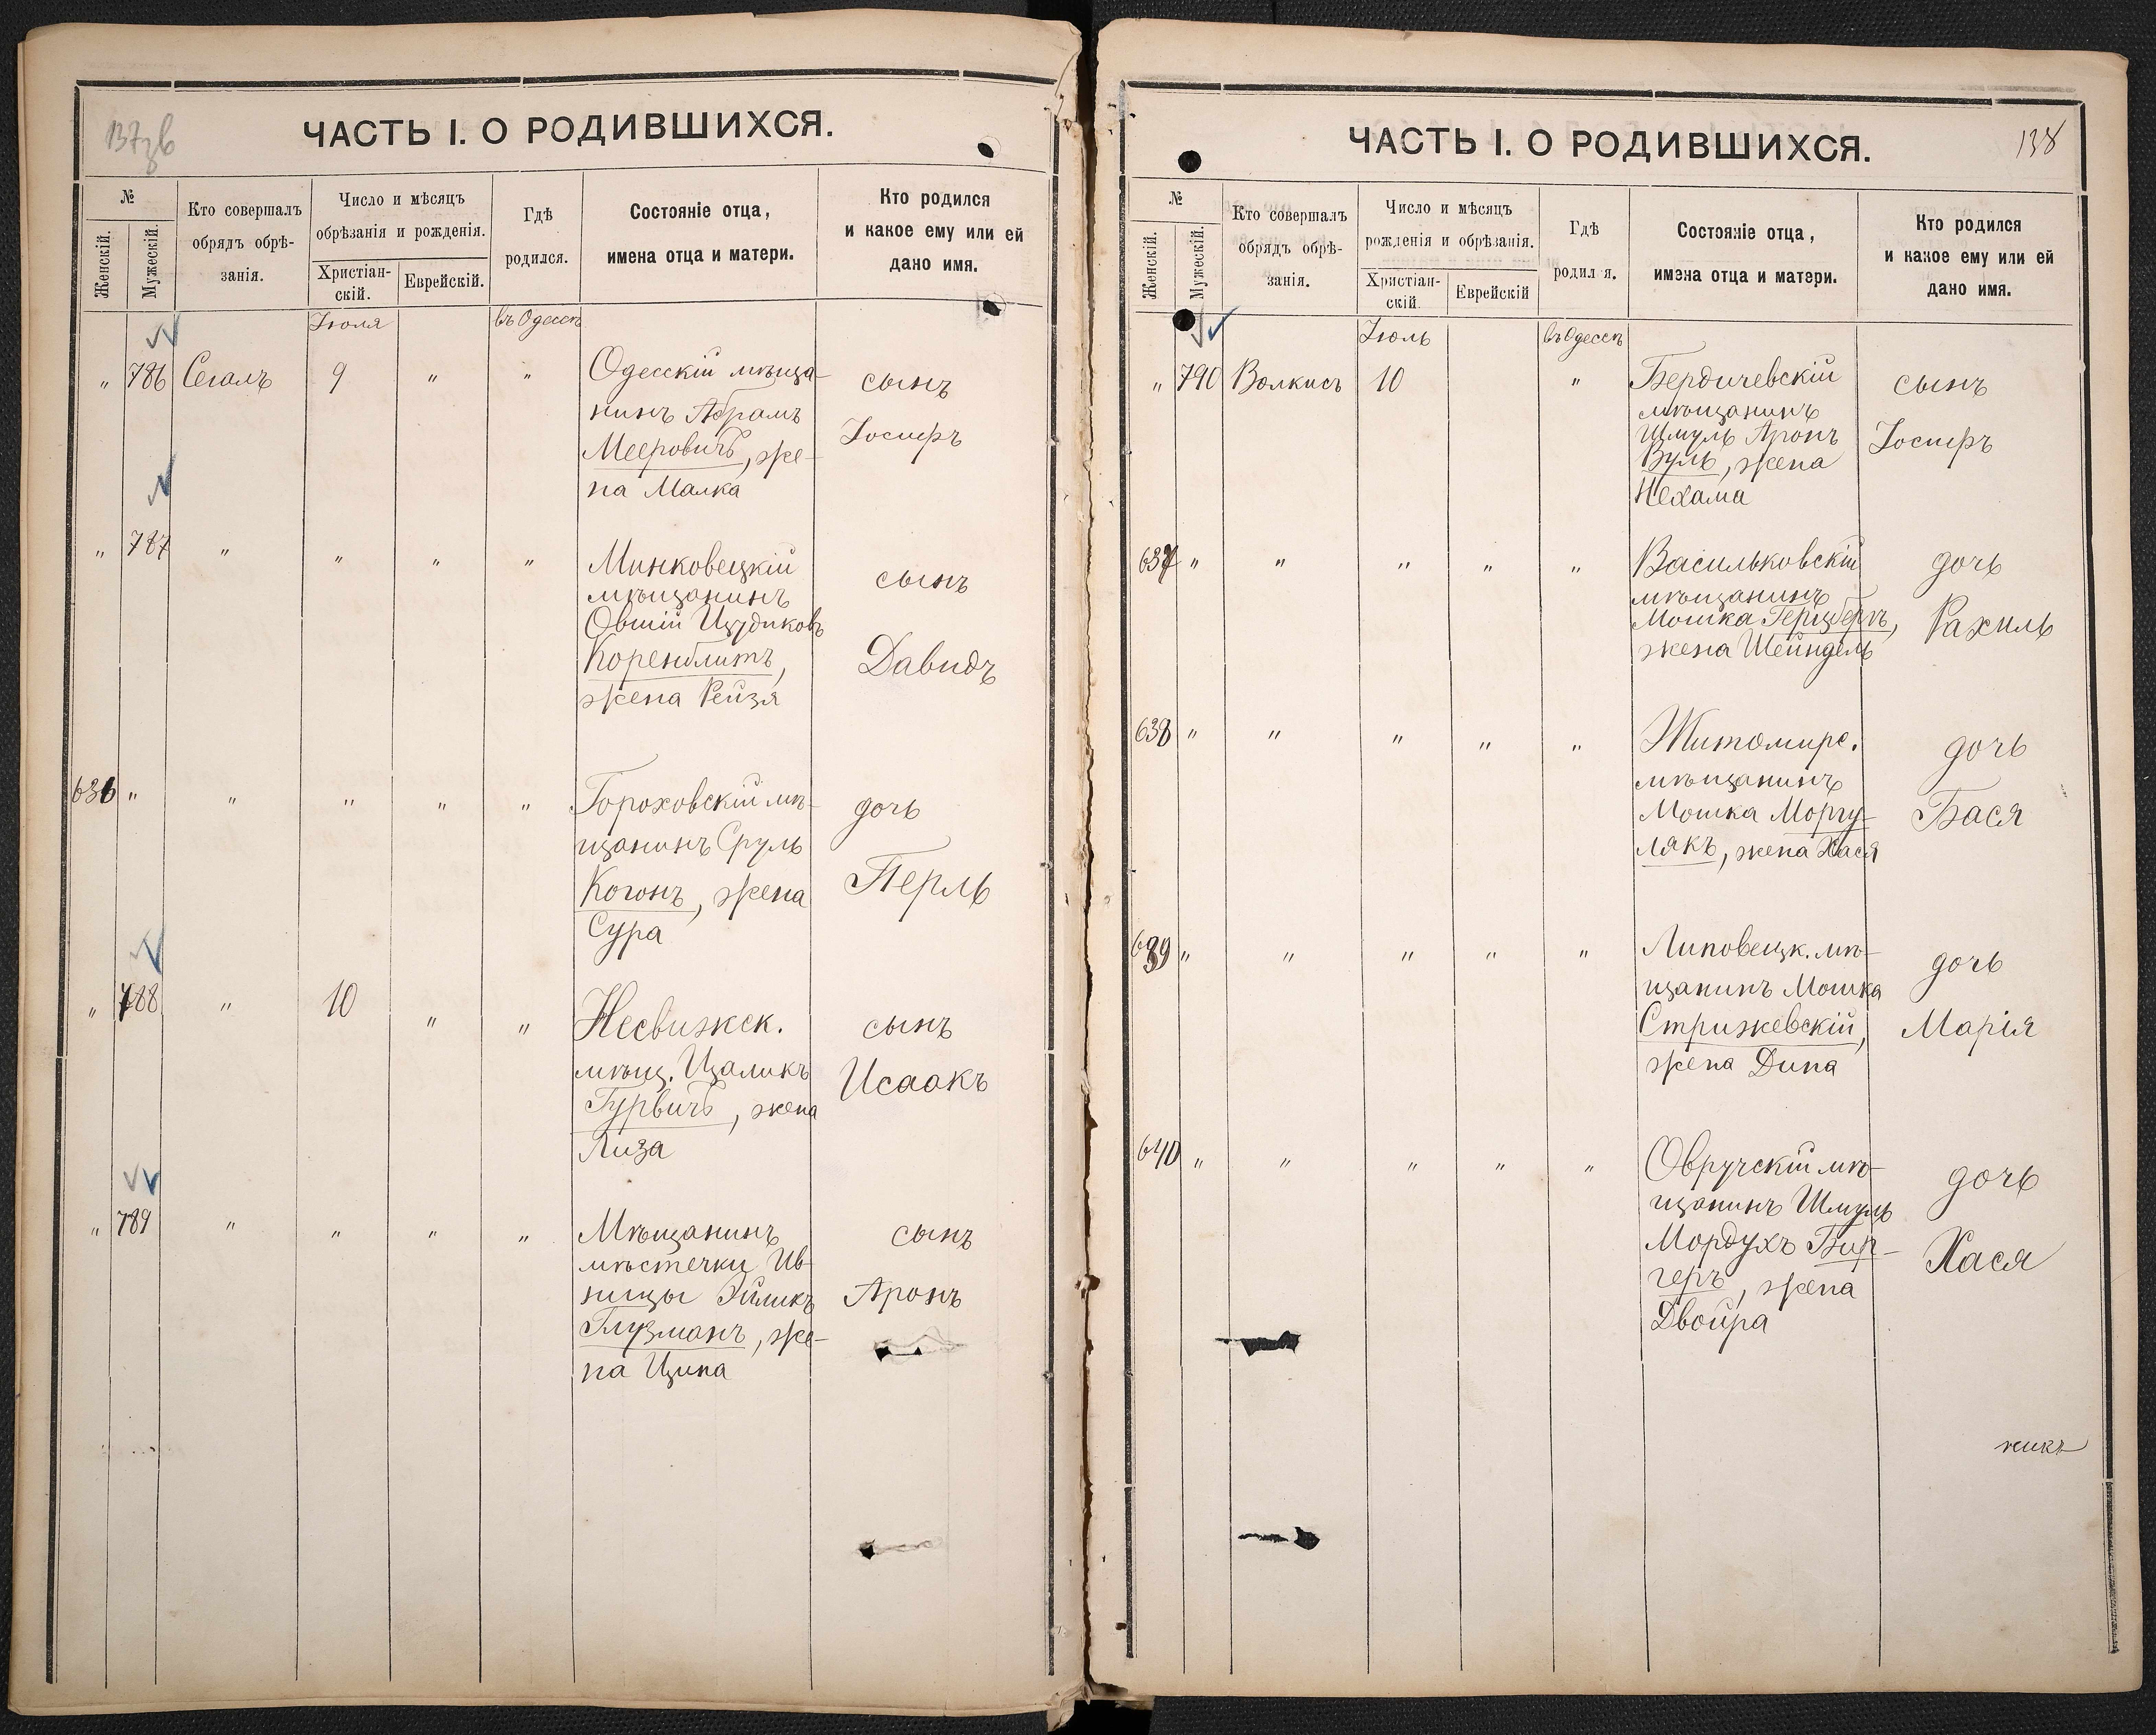 137 об
ЧАСТЬ I. О РОДИВШИХСЯ.
№
Женскій.
Мужескій.
Кто совершалъ
обрядъ обрѣ-
занія.
Число и мѣсяцъ
обрѣзанія и рожденія.
Христіан-
скій.
Еврейскій.
Гдѣ
родился.
Состояніе отца,
имена отца и матери.
Кто родился
и какое ему или ей
дано имя.
Іюля
въ Одессѣ
" 786 Сегалъ 9 " "
Одесскій мѣща-
нинъ Абрамъ
Мееровичъ, же-
на Малка
сынъ
Іосифъ
" 787 " " " "
Минковецкій
мѣщанинъ
Овшій Ицдиковъ
Коренблитъ,
жена Рейзя
сынъ
Давидъ
636 " " " " "
Гороховскій мѣ-
щанинъ Сруль
Когонъ, жена
Сура
дочь
Перль
" 788 " 10 " "
Несвижск.
мѣщ. Цаликъ
Гурвичъ, жена
Лиза
сынъ
Исаакъ
" 789 " " " "
Мѣщанинъ
мѣстечки Ив-
ницы Эйликъ
Глузманъ, же-
на Ципа
сынъ
Аронъ
138
ЧАСТЬ I. О РОДИВШИХСЯ.
№
Женскій.
Мужескій.
Кто совершалъ
обрядъ обрѣ-
занія.
Число и мѣсяцъ
рожденія и обрѣзанія.
Христіан-
скій.
Еврейскій
Гдѣ
родил я.
Состояніе отца,
имена отца и матери.
Кто родился
и какое ему или ей
дано имя.
Іюль
въ Одессѣ
" 790 Волкисъ 10 "
Бердичевскій
мѣщанинъ
Шмуль Аронъ
Вуль, жена
Нехама
сынъ
Іосифъ
637 " " " " "
Васильковскій
мѣщанинъ
Мошка Герцбергъ,
жена Шейндель
дочь
Рахиль
638 " " " " "
Житомирс.
мѣщанинъ
Мошка Моргу-
лякъ, жена Хася
дочь
Бася
639 " " " " "
Липовецк. мѣ-
щанинъ Мошка
Стрижевскій,
жена Дина
дочь
Марія
640 " " " " "
Овручскій мѣ-
щанинъ Шмуль
Мордухъ Бир-
геръ, жена
Двойра
дочь
Хася